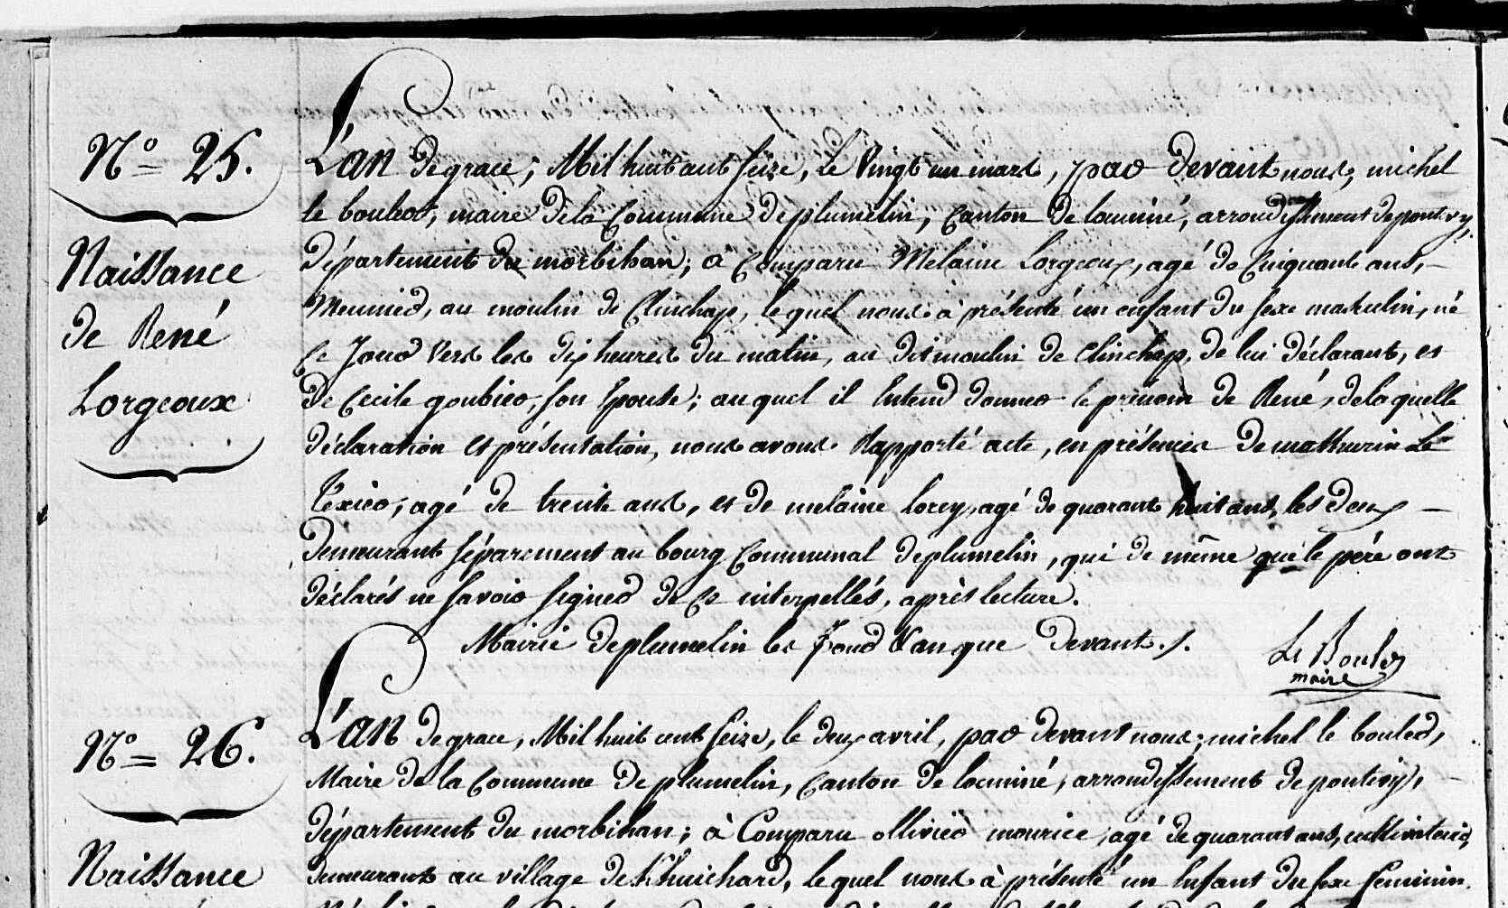 N.o 25.
Naissance
de René
Lorgeoux
L'an de grace, Mil huit cent seize, le vingt un mars, par devant nous, michel
le bouler, maire de la Commune de plumelin, Canton de locminé, arrondissement de pontivy,
département du morbihan; à Comparu Melaine Lorgeoux, agé de Cinquante ans,
Meunier, au moulin de Clinchap, lequel nous à présenté un enfant du sexe masculin, né
Ce Jour vers les dix heures du matin, au dit moulin de Clinchap, de lui déclarant, et
de Cecile goubier, son Epouse; auquel il Entend donner le prénom de René, de laquelle
déclaration et présentation, nous avons Rapporté acte, en présence de mathurin Le
Texier, agé de trente ans, et de melaine Lorcy, agé de quarante huit ans, les deux
demeurant séparement au bourg Communal de plumelin, qui de même que le père ont
déclarés ne savoir signer de Ce interpellés, après lecture.
Mairie de plumelin les Jour & an que devant./.
Le Bouler
maire
N.o 26.
Naissance
L'an de grace, Mil huit cent seize, le deux avril, par devant nous, michel le bouler,
Maire de la Commune de plumelin, Canton de locminé, arrondissement de pontivy,
département du morbihan; à Comparu ollivier mourice, agé de quarante ans, cultivateur,
demeurant au village de Khuichard, lequel nous à présenté un Enfant du sexe feminin.